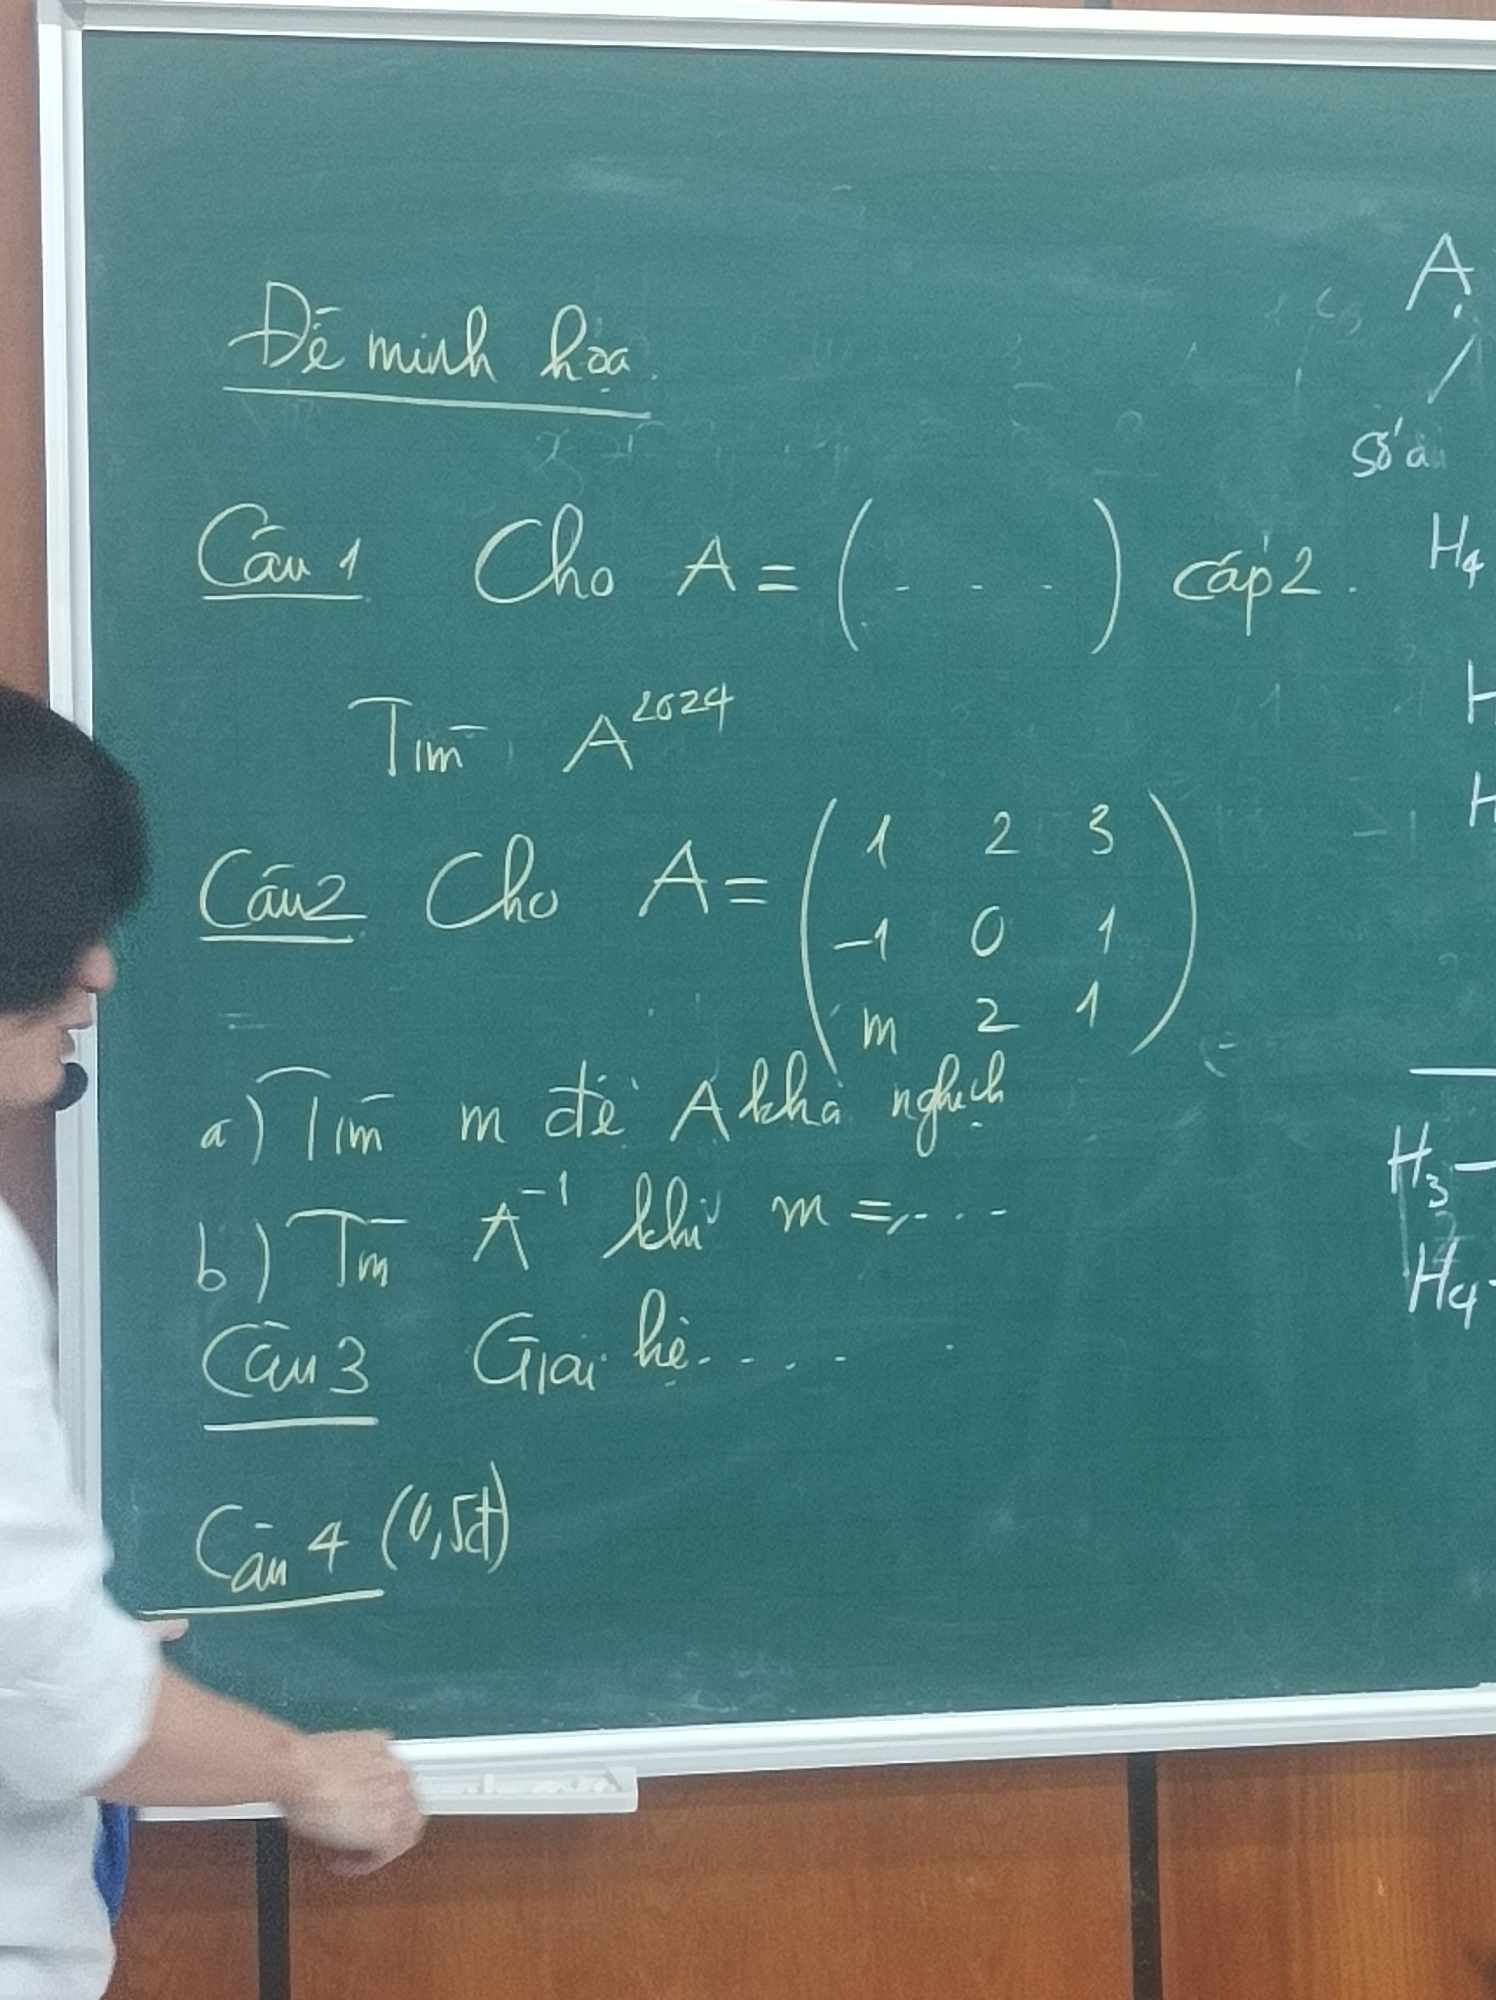 Đề minh họa
Câu 1 Cho A = ( . . . ) cấp 2.
Tìm A^2024
Câu 2 Cho A = ( 1 2 3
-1 0 1
m 2 1 )
a) Tìm m để A khả nghịch
b) Tìm A^-1 khi m = . . . .
Câu 3 Giải hệ . . . .
Câu 4 (0,5đ)
A
số ẩn
H4
H
H
H3 –
H4 -